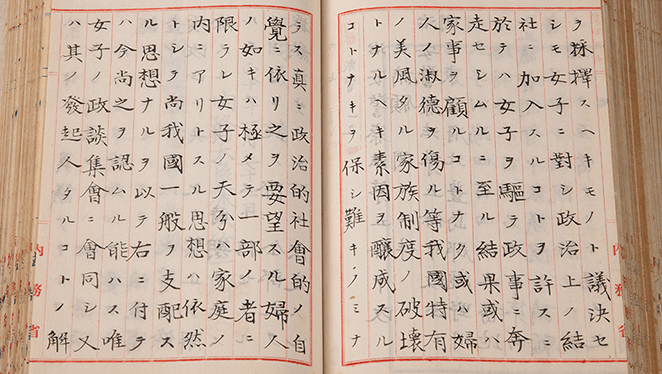 ヲ採擇スヘキモノト議決セ
シモ女子ニ對シ政治上ノ結
社ニ加入スルコトヲ許スニ
於テハ女子ヲ驅テ政事ニ奔
走セシムルニ至ル結果或ハ
家事ヲ顧ルコトナク或ハ婦
人ノ淑德ヲ傷ル等我國特有
ノ美風タル家族制度ノ破壞
トナルヘキ素因ヲ釀成スル
コトナキヲ保シ難キノミナ
ラス眞ニ政治的社會的ノ自
覺ニ依リ之ヲ要望スル婦人
ノ如キハ極メテ一部ノ者ニ
限ラレ女子ノ天分ハ家庭ノ
内ニアリトスル思想ハ依然
トシテ尚我國一般ヲ支配ス
ル思想ナルヲ以テ右ニ付テ
ハ今尚之ヲ認ムル能ハス唯
女子ノ政談集會ニ會同シ又
ハ其ノ發起人タルコトノ解
内務省
内務省